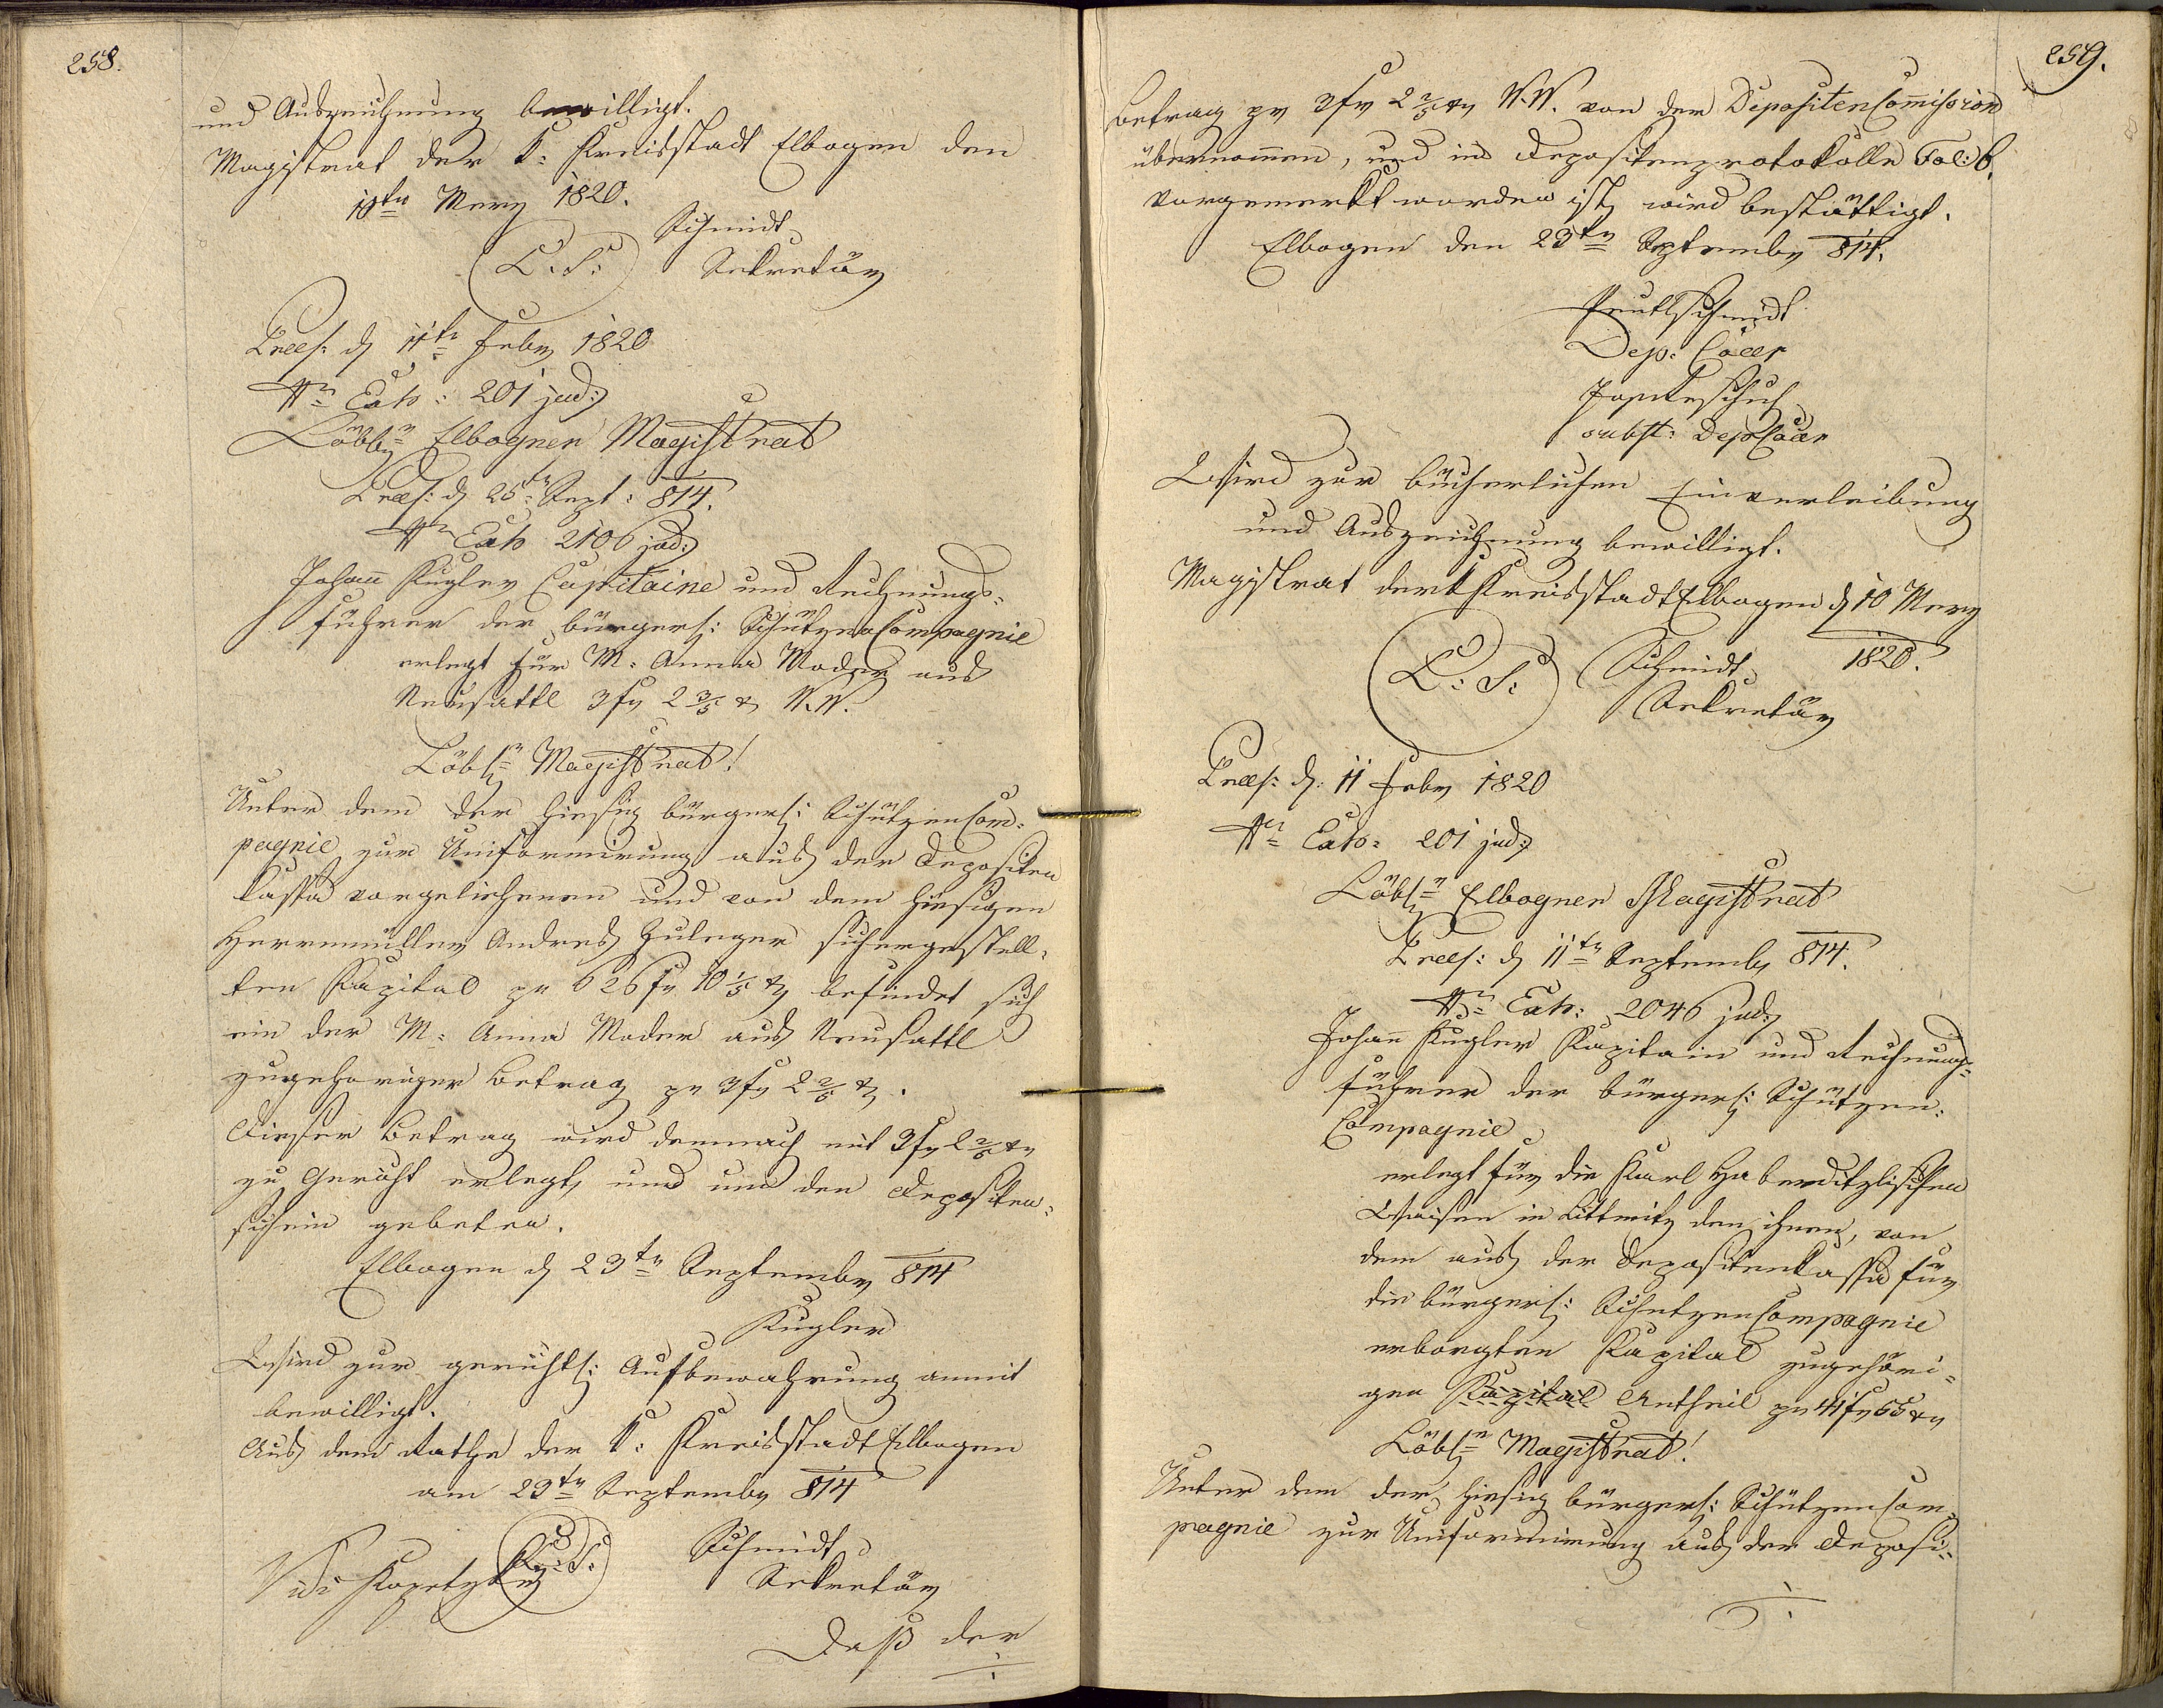 258.
und Auszeichnung bewilligt.
Magistrat der k: Kreisstadt Elbogen den
10tn Merz 1820.
Schmidt
L: S: Sekretär
Præs: d 11tn Feber 1820
Nr Exh: 201 jud:
Löbl: Elbogner Magistrat
Præs: d 25tn Sept: 814.
Nr Exh 2106 jud:
Johann Kugler Capitaine und Rechnungs-
führer der bürgerl: Schützen Compagnie
erlegt für M: Anna Moder aus
Neusattl 3 fr 2 2/5 xr W.W.
Löbl: Magistrat!
Unter dem der hiesig bürgerl: Schützen Com-
pagnie zur Uniformirung aus der Depositen
kassa vorgeliehenen und von dem hiesigen
Herrnmüller Andreas Zuleger sichergestell-
ten Kapital pr 626 fr 10 1/5 xr befindet sich
ein der M: Anna Moder aus Neusattl
zugehöriger Betrag pr 3 fr 2 2/5 xr.
Dieser Betrag wird demnach mit 3 fr 2 2/5 xr
zu Gericht erlegt, und um den Depositen-
schein gebeten.
Elbogen d 23tn September 814
Kugler
Wird zur gerichtl: Aufbewahrung anmit
bewilligt.
Aus dem Rathe der k: Kreisstadt Elbogen
am 23tn September 814
L: S: Schmidt
Vidi Kopetzky Sekretär
Daß der
259.
Betrag pr 3 fr 2 2/5 xr W.W. von der Depositen Commission
übernommen, und ins Depositenprotokolle Fol: 6.
vorgemerkt worden ist, wird bestättigt.
Elbogen den 23tn September 814.
Dep: Coär
subst: Dep Coär
Wird zur bücherlichen Einverleibung
und Auszeichnung bewilligt.
Magistrat der k Kreisstadt Elbogen d 10 Merz
1820.
L: S: Schmidt
Sekretär
Præs: d: 11 Feber 1820
Nr Exh: 201 jud:
Löbl: Elbogner Magistrat
Præs: d 11tn September 814.
Nr Exh: 2046 jud:
Johann Kugler Kapitain und Rechnungs-
führer der bürgerl: Schützen-
Compagnie
erlegt für die Karl Haberditzlischen
Waisen in Littmitz den ihnen, von
dem aus der Depositenkassa für
die bürgerl: Schützen Compagnie
erborgten Kapital zugehöri-
gen Kapital Antheil pr 41 fr 55 xr
Löbl: Magistrat!
Unter dem der hiesig bürgerl: Schützen Com-
pagnie zur Uniformirung aus der Deposi-